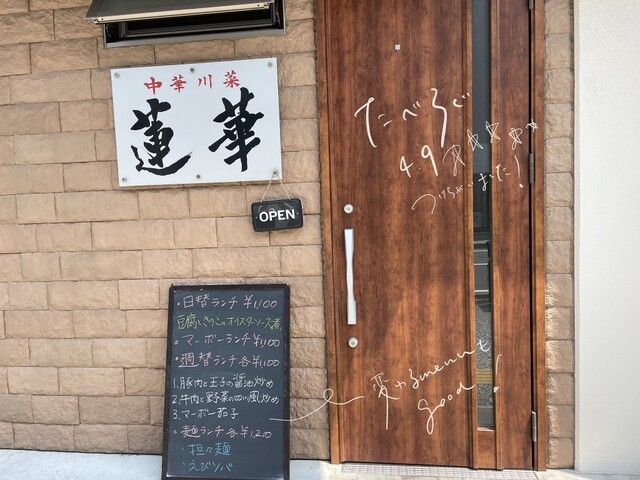 中華川菜
蓮華
OPEN
たべろぐ
4.9 ☆☆☆☆☆
つけちゃいました！
・日替ランチ ¥1,100
豆腐ときのこのオイスターソース煮
・マーボーランチ ¥1,100
・週替ランチ 各¥1,100
1.豚肉と玉子の醤油炒め
2.牛肉と野菜の四川風炒め
3.マーボー茄子
・麺ランチ 各¥1,210
・担々麺
・えびソバ
変わるmenuも
good!